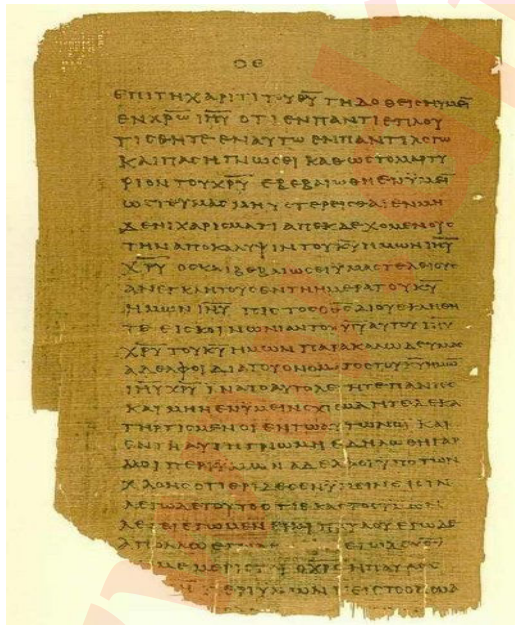 ΟΕ
ΕΠΙ ΤΗ ΧΑΡΙΤΙ ΤΟΥ Θ̅Υ̅ ΤΗ ΔΟΘΕΙΣΗ ΥΜΕΙ
ΕΝ Χ̅Ρ̅Ω̅ Ι̅Η̅Υ̅ ΟΤΙ ΕΝ ΠΑΝΤΙ ΕΠΛΟΥ
ΤΙΣΘΗΤΕ ΕΝ ΑΥΤΩ ΕΝ ΠΑΝΤΙ ΛΟΓΩ
ΚΑΙ ΠΑΣΗ ΓΝΩΣΕΙ ΚΑΘΩΣ ΤΟ ΜΑΡΤΥ
ΡΙΟΝ ΤΟΥ Χ̅Ρ̅Υ̅ ΕΒΕΒΑΙΩΘΗ ΕΝ ΥΜΕΙ
ΩΣΤΕ ΥΜΑΣ ΜΗ ΥΣΤΕΡΕΙΣΘΑΙ ΕΝ ΜΗ
ΔΕΝΙ ΧΑΡΙΣΜΑΤΙ ΑΠΕΚΔΕΧΟΜΕΝΟΥΣ
ΤΗΝ ΑΠΟΚΑΛΥΨΙΝ ΤΟΥ Κ̅Υ̅ ΗΜΩΝ Ι̅Η̅Υ̅
Χ̅Ρ̅Υ̅ ΟΣ ΚΑΙ ΒΕΒΑΙΩΣΕΙ ΥΜΑΣ ΤΕΛΕΙΟΥΣ
ΑΝΕΓΚΛΗΤΟΥΣ ΕΝ ΤΗ ΗΜΕΡΑ ΤΟΥ Κ̅Υ̅
ΗΜΩΝ Ι̅Η̅Υ̅ ΠΙΣΤΟΣ Ο Θ̅Σ̅ ΔΙ ΟΥ ΕΚΛΗΘΗ
ΤΕ ΕΙΣ ΚΟΙΝΩΝΙΑΝ ΤΟΥ Υ̅Υ̅ ΑΥΤΟΥ Ι̅Η̅Υ̅
Χ̅Ρ̅Υ̅ ΤΟΥ Κ̅Υ̅ ΗΜΩΝ ΠΑΡΑΚΑΛΩ ΔΕ ΥΜΑΣ
ΑΔΕΛΦΟΙ ΔΙΑ ΤΟΥ ΟΝΟΜΑΤΟΣ ΤΟΥ Κ̅Υ̅ ΗΜΩ
Ι̅Η̅Υ̅ Χ̅Ρ̅Υ̅ ΙΝΑ ΤΟ ΑΥΤΟ ΛΕΓΗΤΕ ΠΑΝΤΕΣ
ΚΑΙ ΜΗ Η ΕΝ ΥΜΕΙΝ ΣΧΙΣΜΑ ΗΤΕ ΔΕ ΚΑ
ΤΗΡΤΙΣΜΕΝΟΙ ΕΝ ΤΩ ΑΥΤΩ ΝΟΙ ΚΑΙ
ΕΝ ΤΗ ΑΥΤΗ ΓΝΩΜΗ ΕΔΗΛΩΘΗ ΓΑΡ
ΜΟΙ ΠΕΡΙ ΥΜΩΝ ΑΔΕΛΦΟΙ ΥΠΟ ΤΩΝ
ΧΛΟΗΣ ΟΤΙ ΕΡΙΔΕΣ ΕΝ ΥΜΕΙΝ ΕΙΣΙΝ
ΛΕΓΩ ΔΕ ΤΟΥΤΟ ΟΤΙ ΕΚΑΣΤΟΣ ΥΜΩΝ
ΛΕΓΕΙ ΕΓΩ ΜΕΝ ΕΙΜΙ ΠΑΥΛΟΥ ΕΓΩ ΔΕ
ΑΠΟΛΛΩ ΕΓΩ
ΜΕΜΕΡΙΣΤΑΙ Ο Χ̅Ρ̅Σ̅ ΜΗ ΠΑΥΛΟΣ
ΠΕΡΙ ΥΜΩΝ Η ΕΙΣ ΤΟ ΟΝΟΜΑ